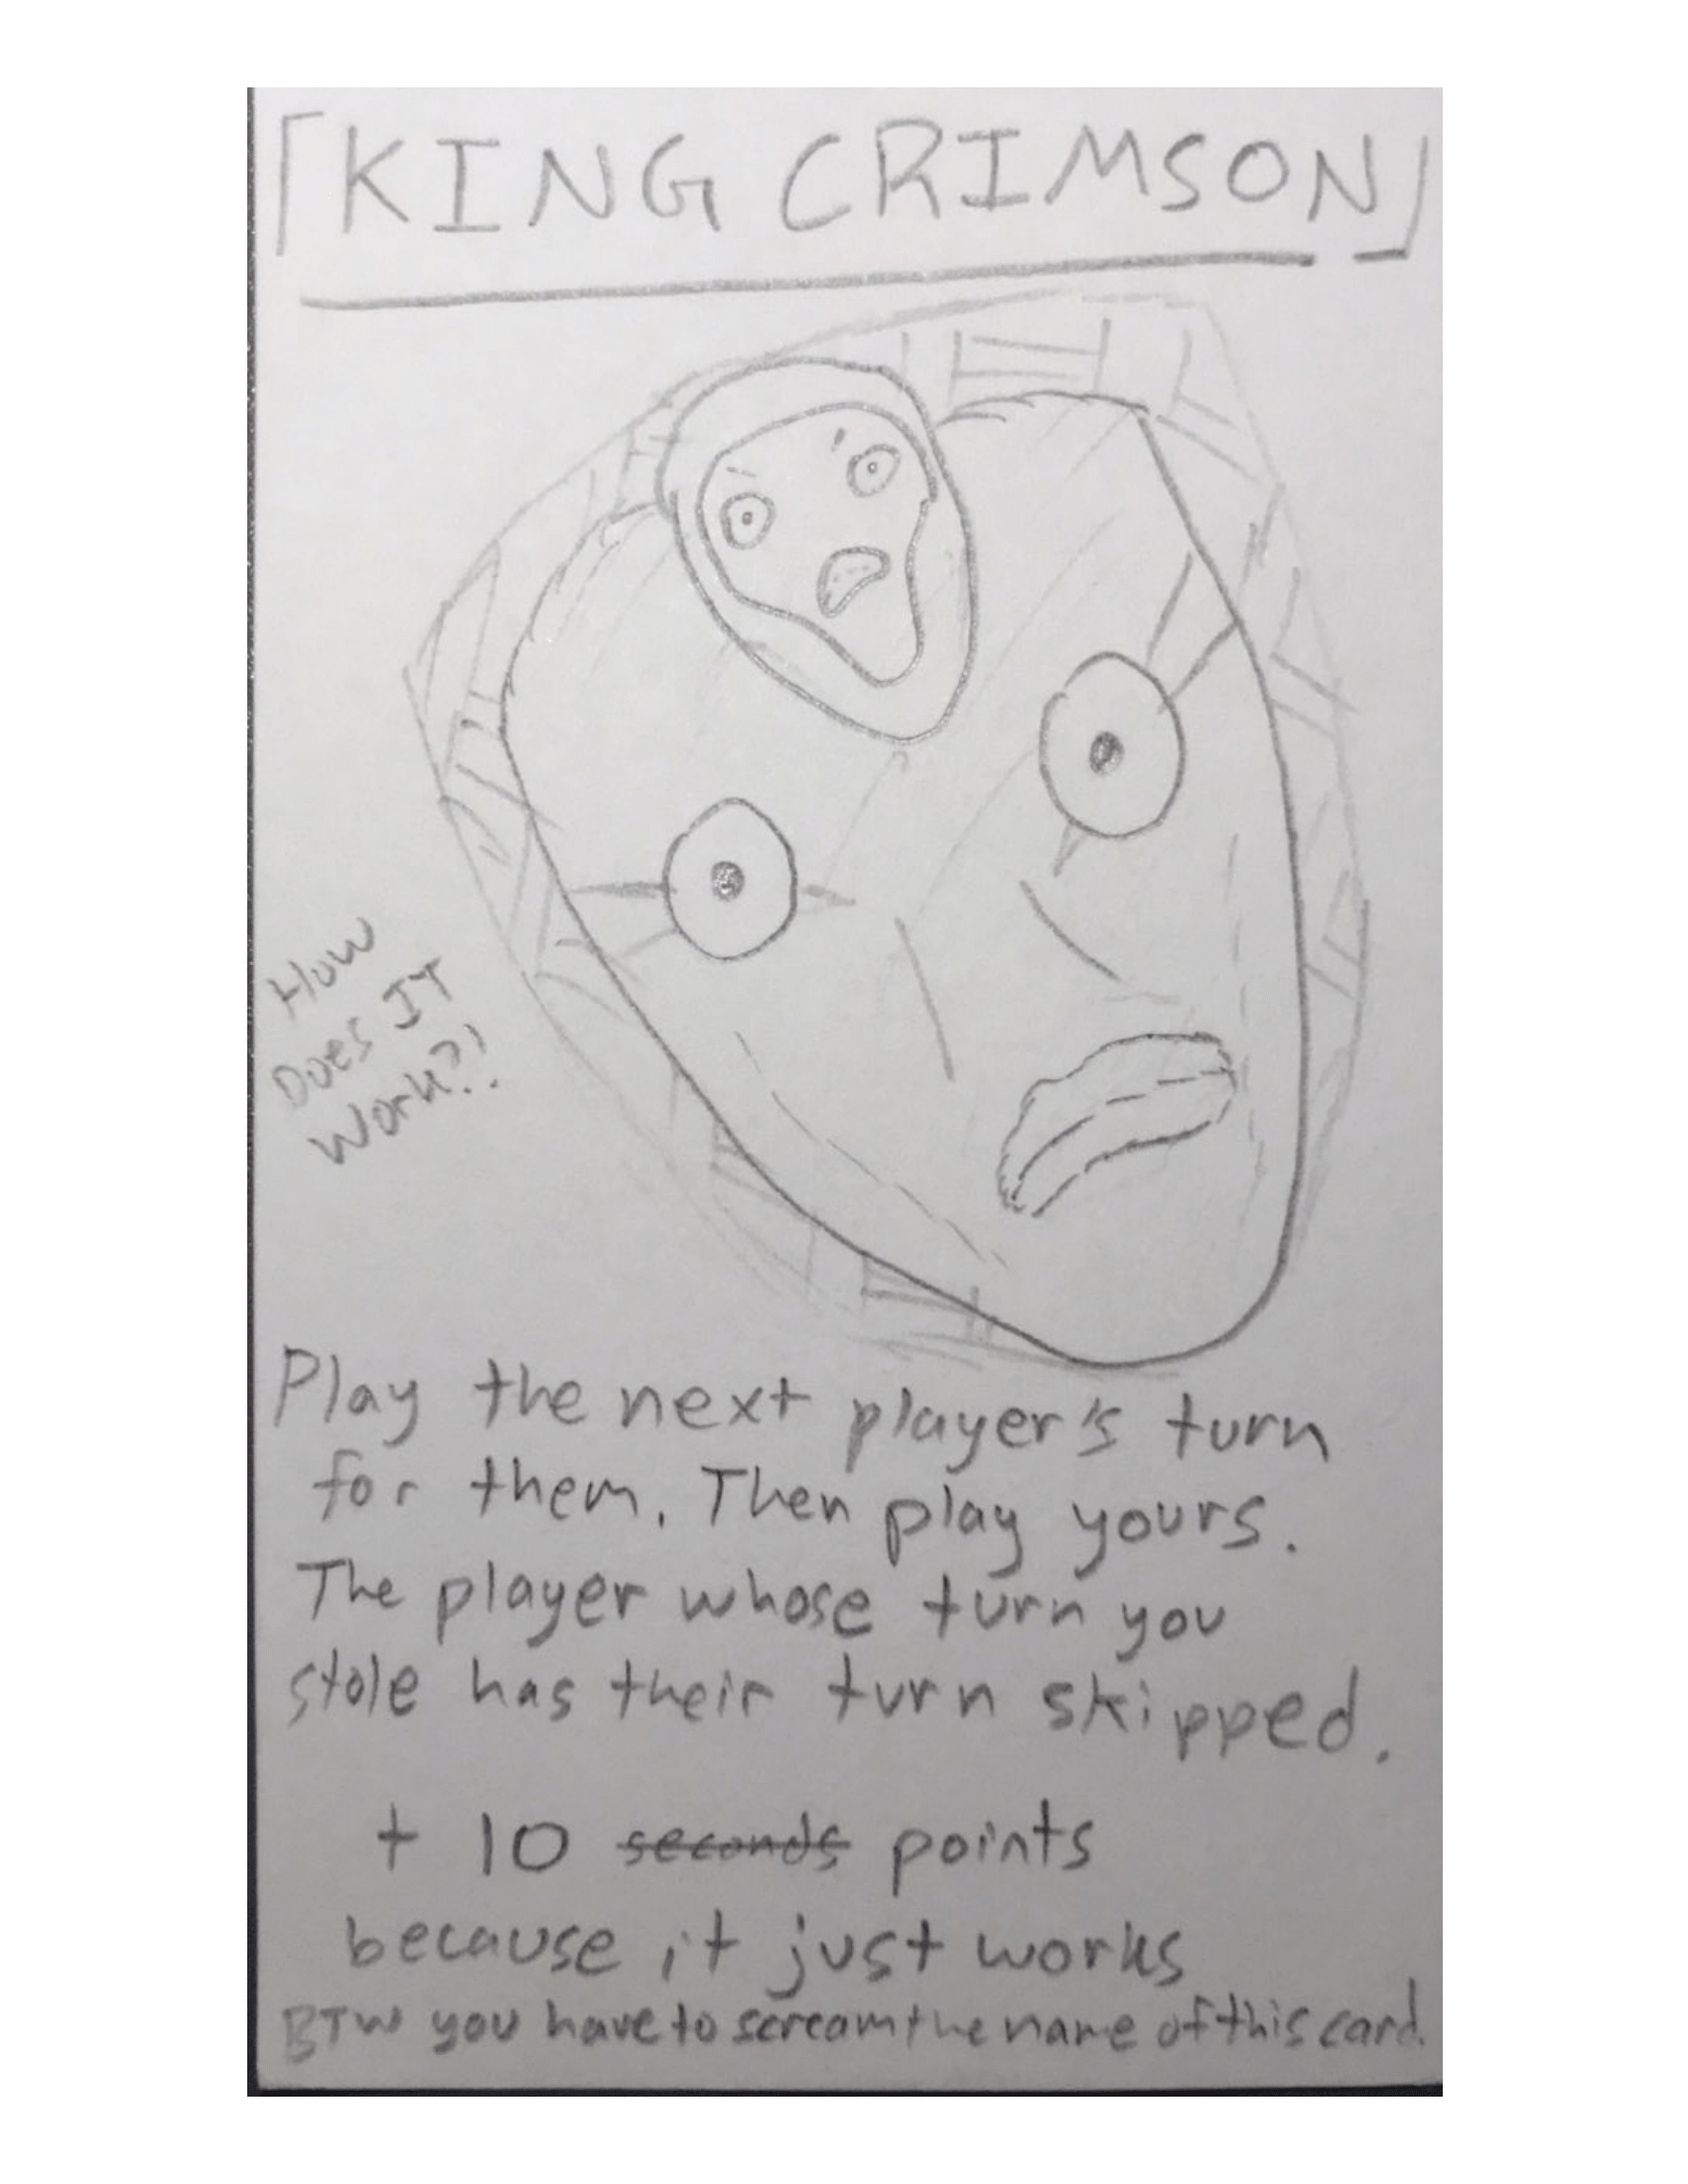 「KING CRIMSON」
How
Does IT
Work?!
Play the next player's turn
for them. Then play yours.
The player whose turn you
stole has their turn skipped.
+ 10 seconds points
because it just works
BTW you have to scream the name of this card.